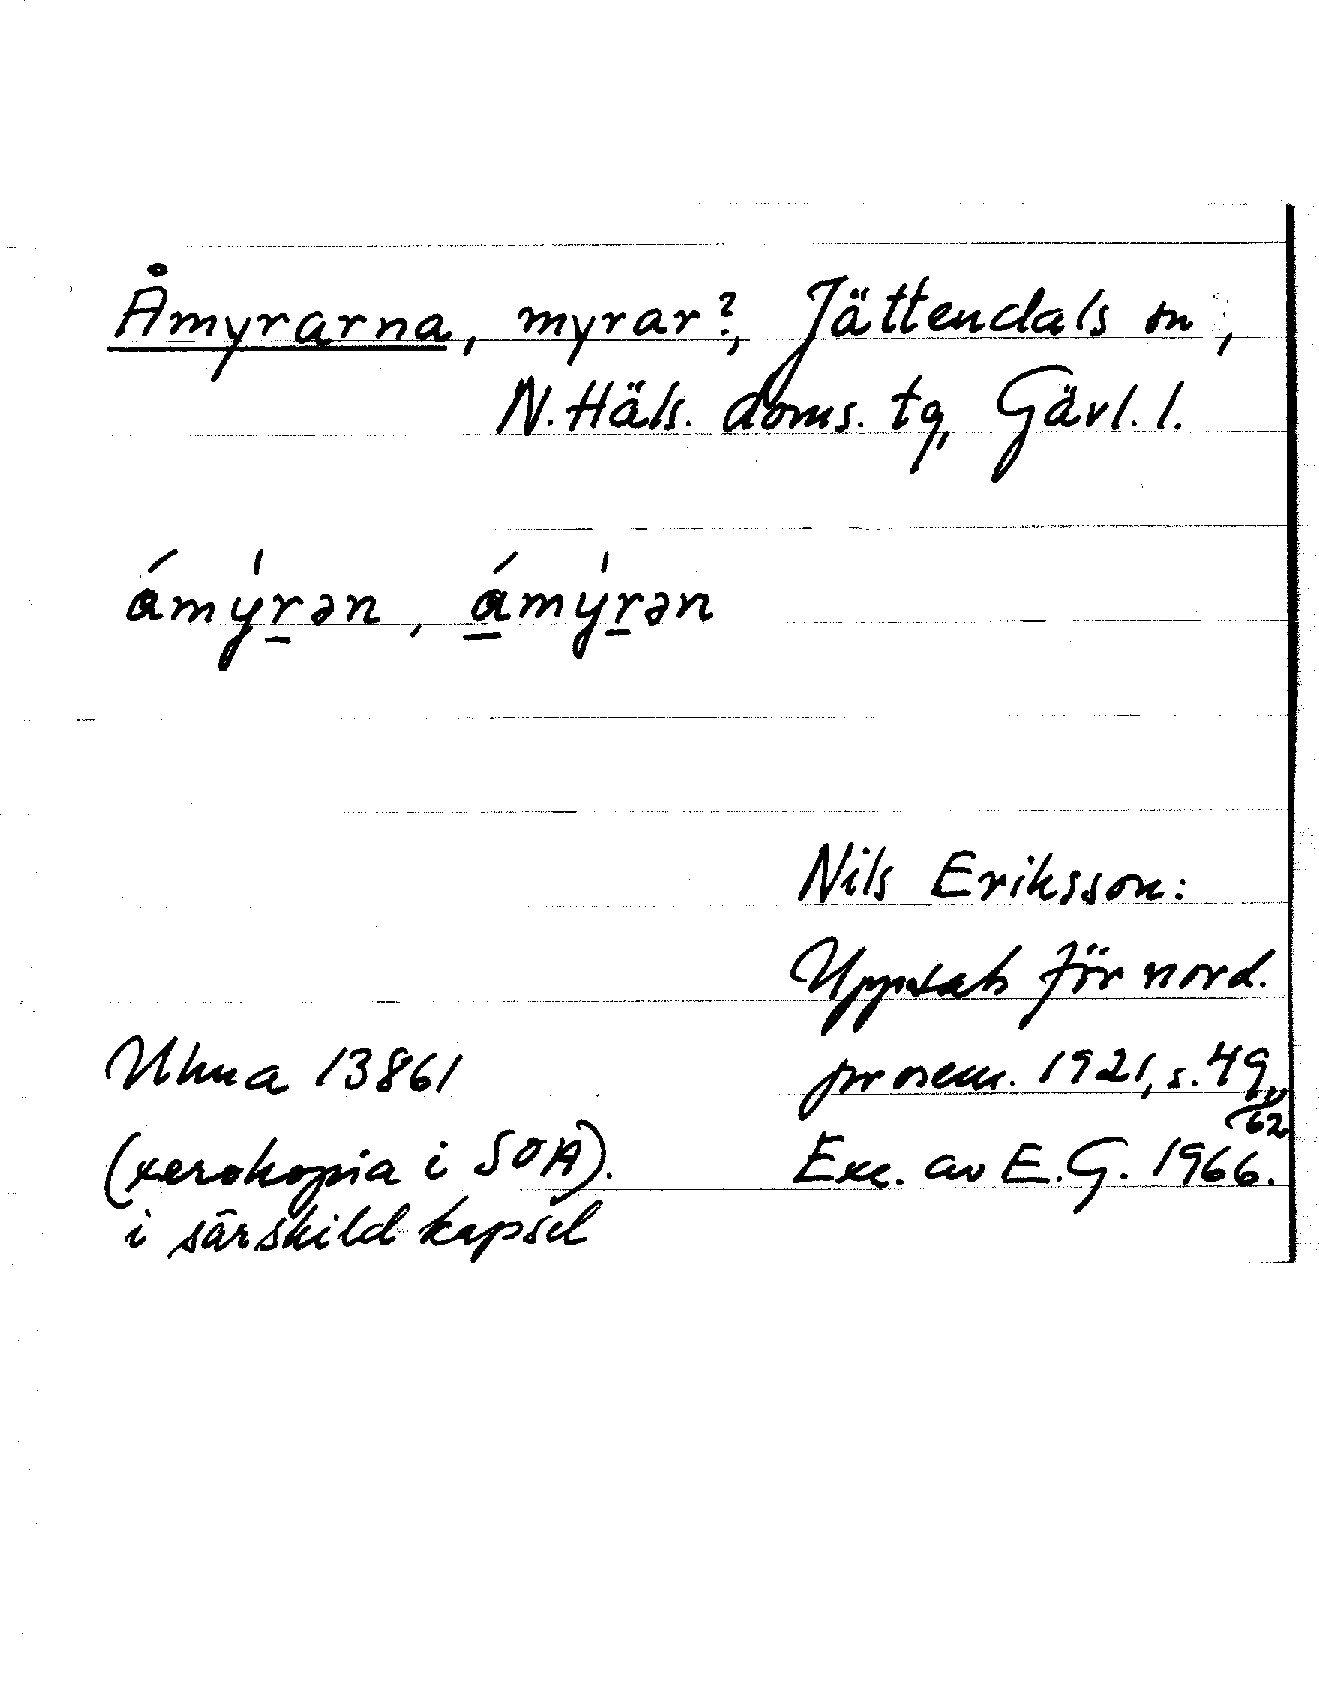 Åmyrarna, myrar?, Jättendals sn,
N. Häls. doms. tg, Gävl. l.
ámýr̲ən, á̲mýr̲ən
Nils Eriksson:
Uppsats för nord.
prosem. 1921, s. 49,
62
Ulma 13861
(xerokopia i SOA).
Exc. av E. G. 1966.
i särskild kapsel